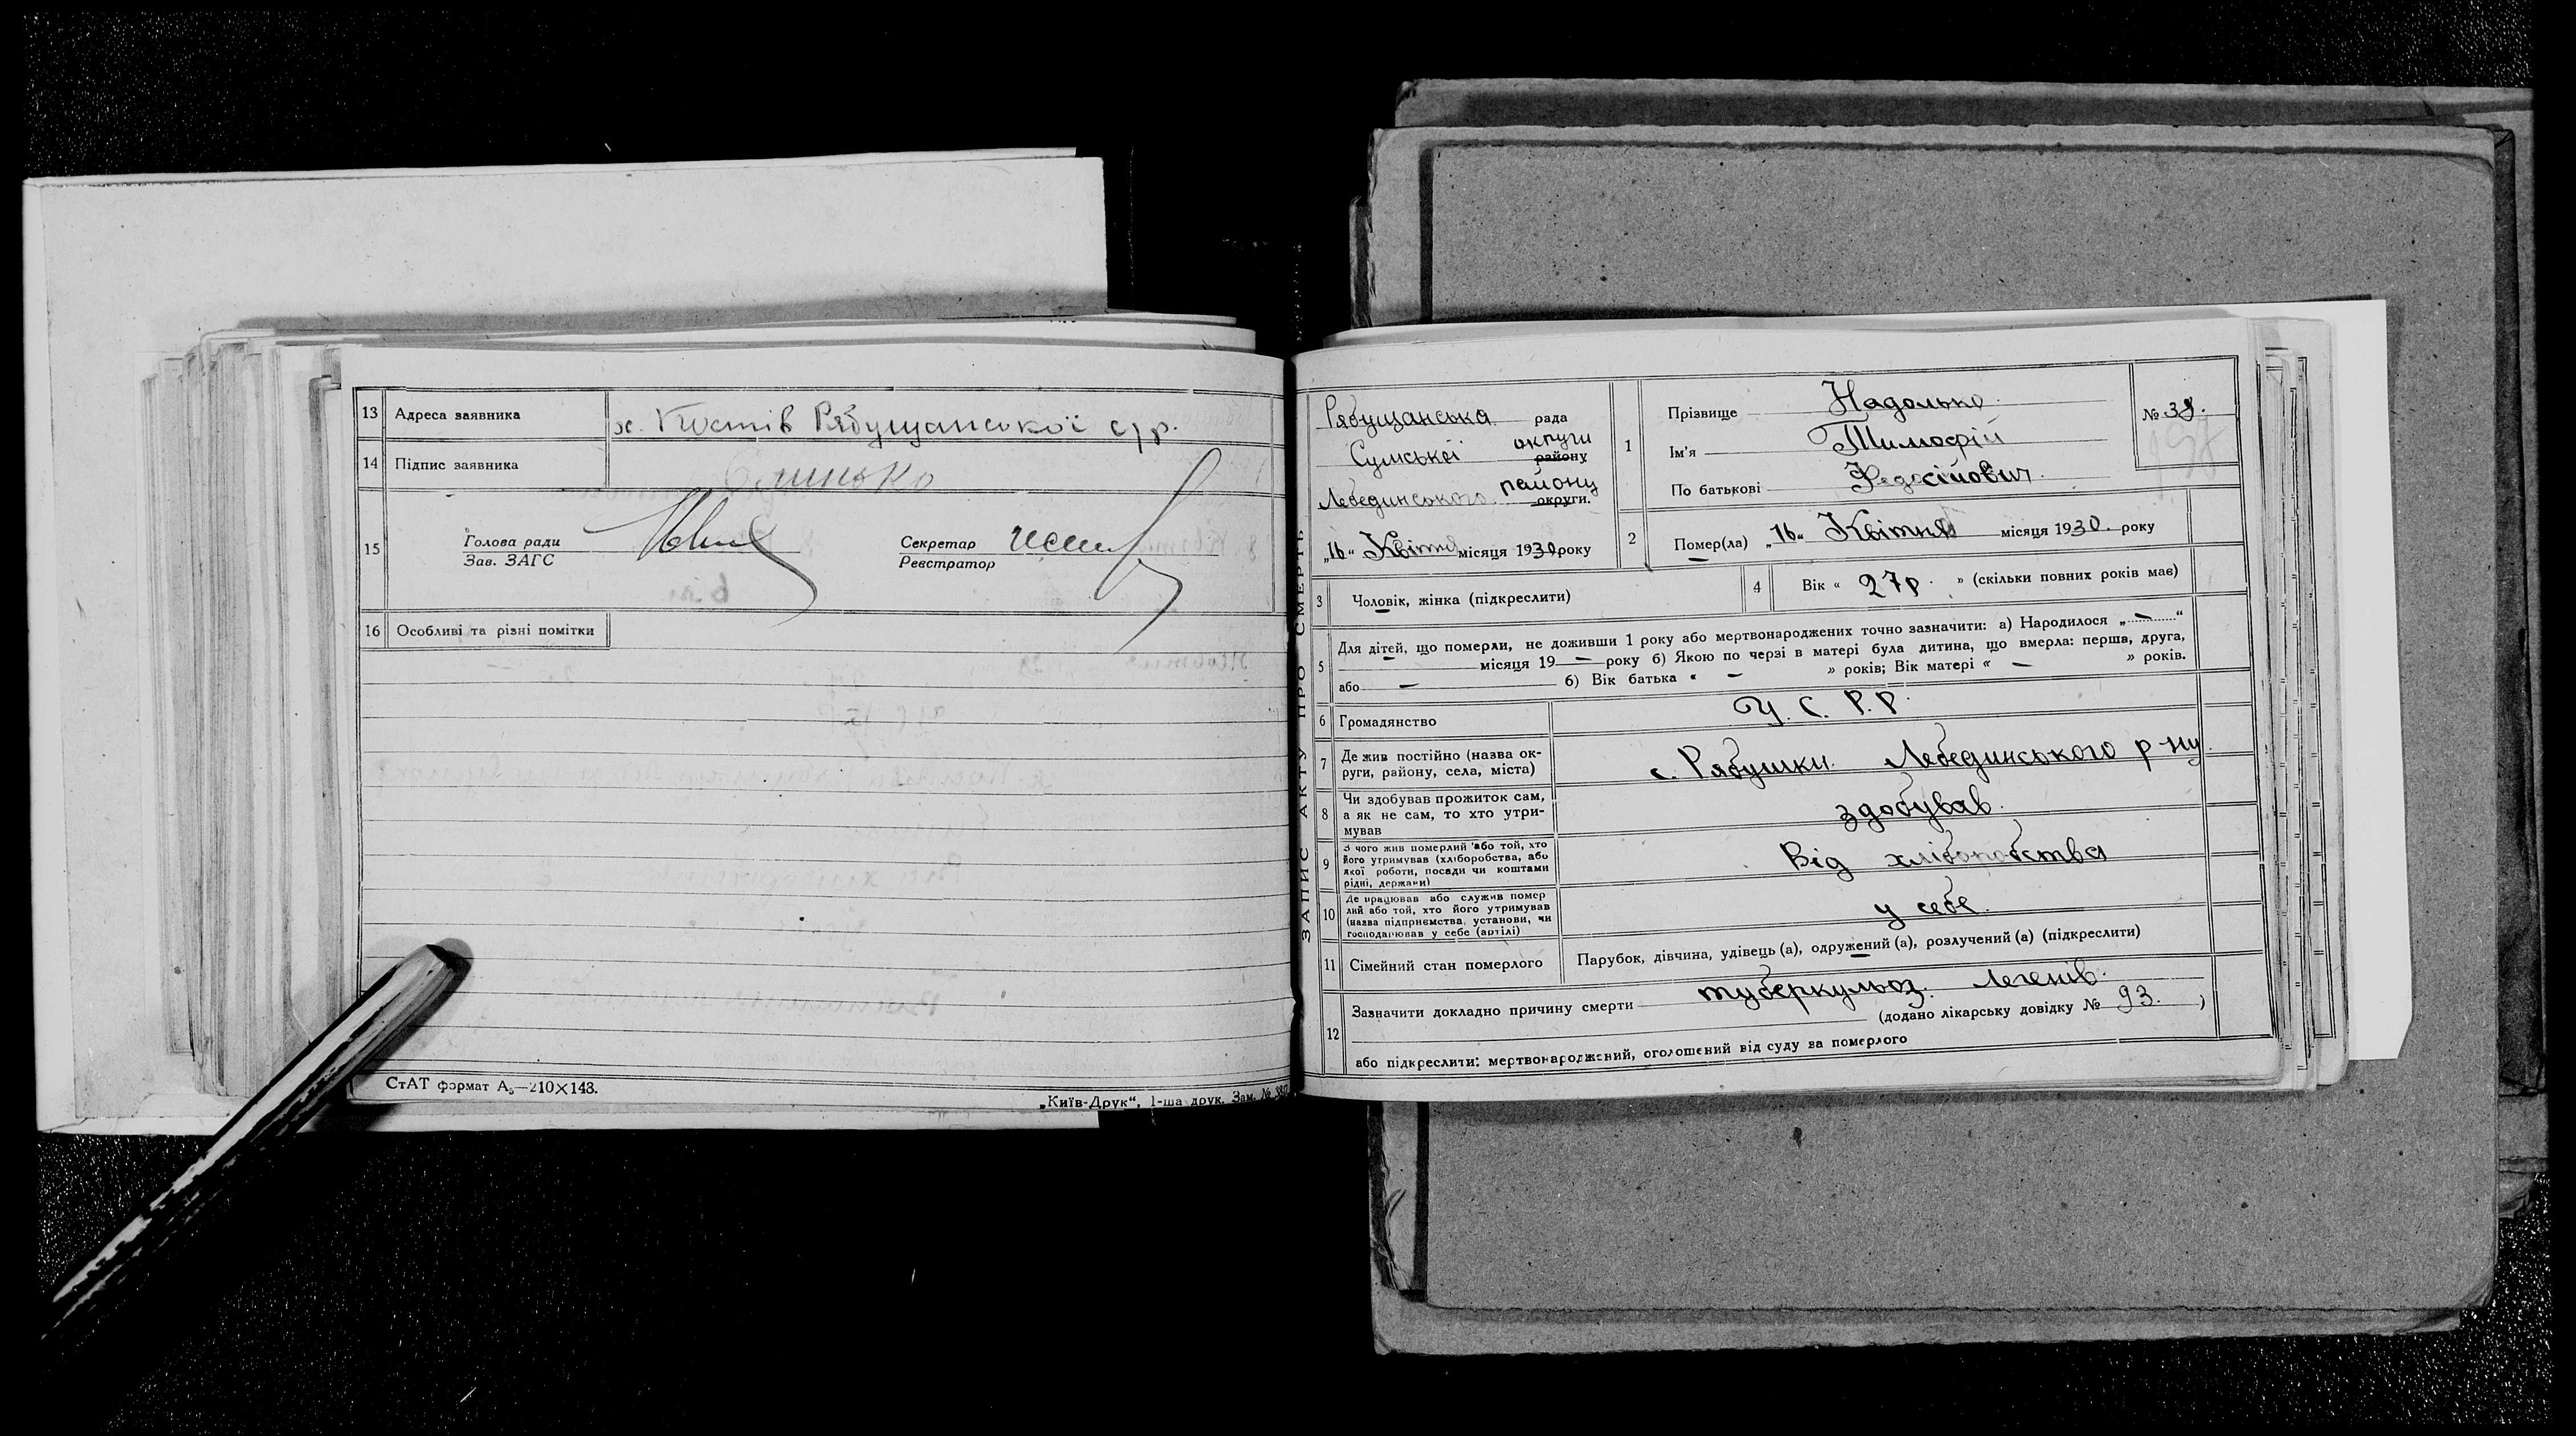 13 Адреса заявника х. Костів Рябущанської с/р.
14 Підпис заявника
15 Голова ради Секретар
Зав. ЗАГС Реєстратор
16 Особливі та різні помітки
СтАТ формат А₅—210×148.
„Київ-Друк“, 1-ша друк. Зам. №
ЗАПИС АКТУ ПРО СМЕРТЬ
Рябущанська рада
Сумської округи району
Лебединського району округи.
„16“ Квітня місяця 1930 року
1 Прізвище Надолько
Ім'я Тимофій
По батькові Федосійович
№ 38.
2 Помер(ла) „16“ Квітня місяця 1930. року
3 Чоловік, жінка (підкреслити)
4 Вік « 27 р. » (скільки повних років має)
5 Для дітей, що померли, не доживши 1 року або мертвонароджених точно зазначити: а) Народилося „ — “
— місяця 19 — року б) Якою по черзі в матері була дитина, що вмерла: перша, друга,
або — б) Вік батька « — » років; Вік матері « — » років.
6 Громадянство У. С. Р. Р.
7 Де жив постійно (назва ок-
руги, району, села, міста) с. Рябушки Лебединського р-ну
8 Чи здобував прожиток сам,
а як не сам, то хто утри-
мував здобував.
9 З чого жив померлий або той, хто
його утримував (хліборобства, або
якої роботи, посади чи коштами
рідні, держави) Від хліборобства
10 Де працював або служив помер
лий або той, хто його утримував
(назва підприємства, установи, чи
господарював у себе (артілі) у себе.
11 Сімейний стан померлого Парубок, дівчина, удівець (а), одружений (а), розлучений (а) (підкреслити)
12 Зазначити докладно причину смерти туберкульоз легенів.
(додано лікарську довідку № 93. )
або підкреслити: мертвонароджений, оголошений від суду за померлого